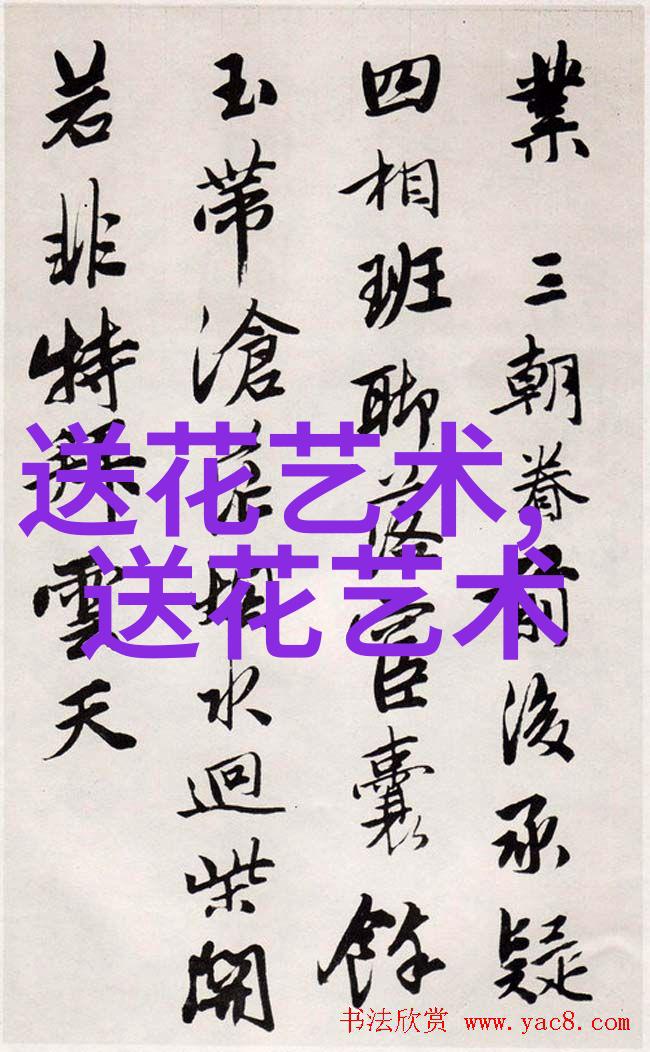 業 三朝眷前後承疑
四相班聊落臣囊餘
玉帶滄水迴柴開
若非特拜雲天
送花艺术,
送花艺术
书法欣赏 www.yac8.com